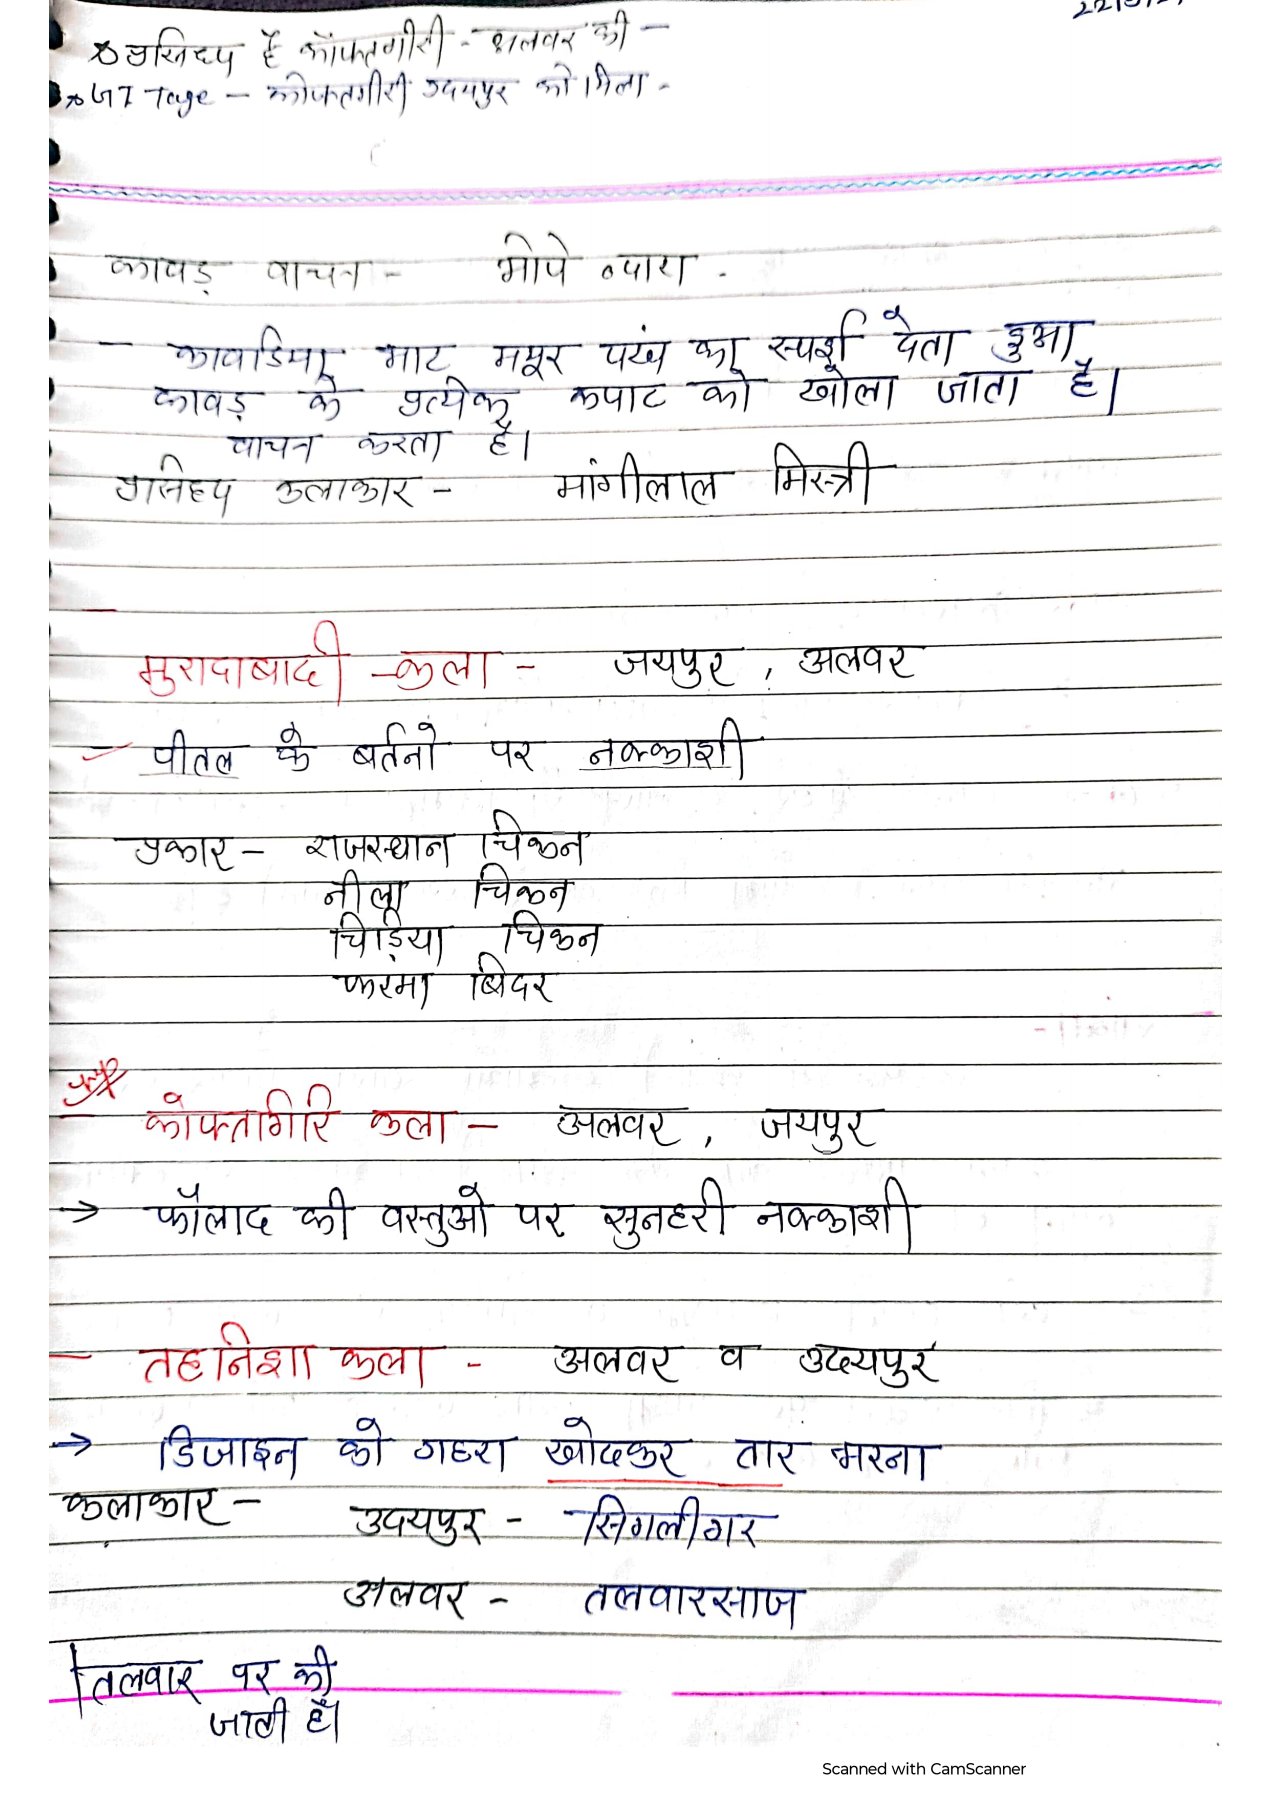 प्रसिध्द है कोफ्तगीरी - अलवर की -
GI Tage - कोफ्तगीरी उदयपुर को मिला -
कावड़ वाचन - भोपे व्दारा -
- कावडिया भाट मयूर पंख का स्पर्श देता हुआ
कावड़ के प्रत्येक कपाट को खोला जाता है।
वाचन करता है।
प्रसिध्द कलाकार - मांगीलाल मिस्त्री
मुरादाबादी कला - जयपुर, अलवर
- पीतल के बर्तनो पर नक्काशी
प्रकार - राजस्थान चिकन
नीला चिकन
चिड़िया चिकन
फरमा बिदर
कोफ्तागिरि कला - अलवर, जयपुर
→ फौलाद की वस्तुओ पर सुनहरी नक्काशी
- तहनिशा कला - अलवर व उदयपुर
→ डिजाइन को गहरा खोदकर तार भरना
कलाकार - उदयपुर - सिगलीगर
अलवर - तलवारसाज
तलवार पर की
जाती है।
Scanned with CamScanner